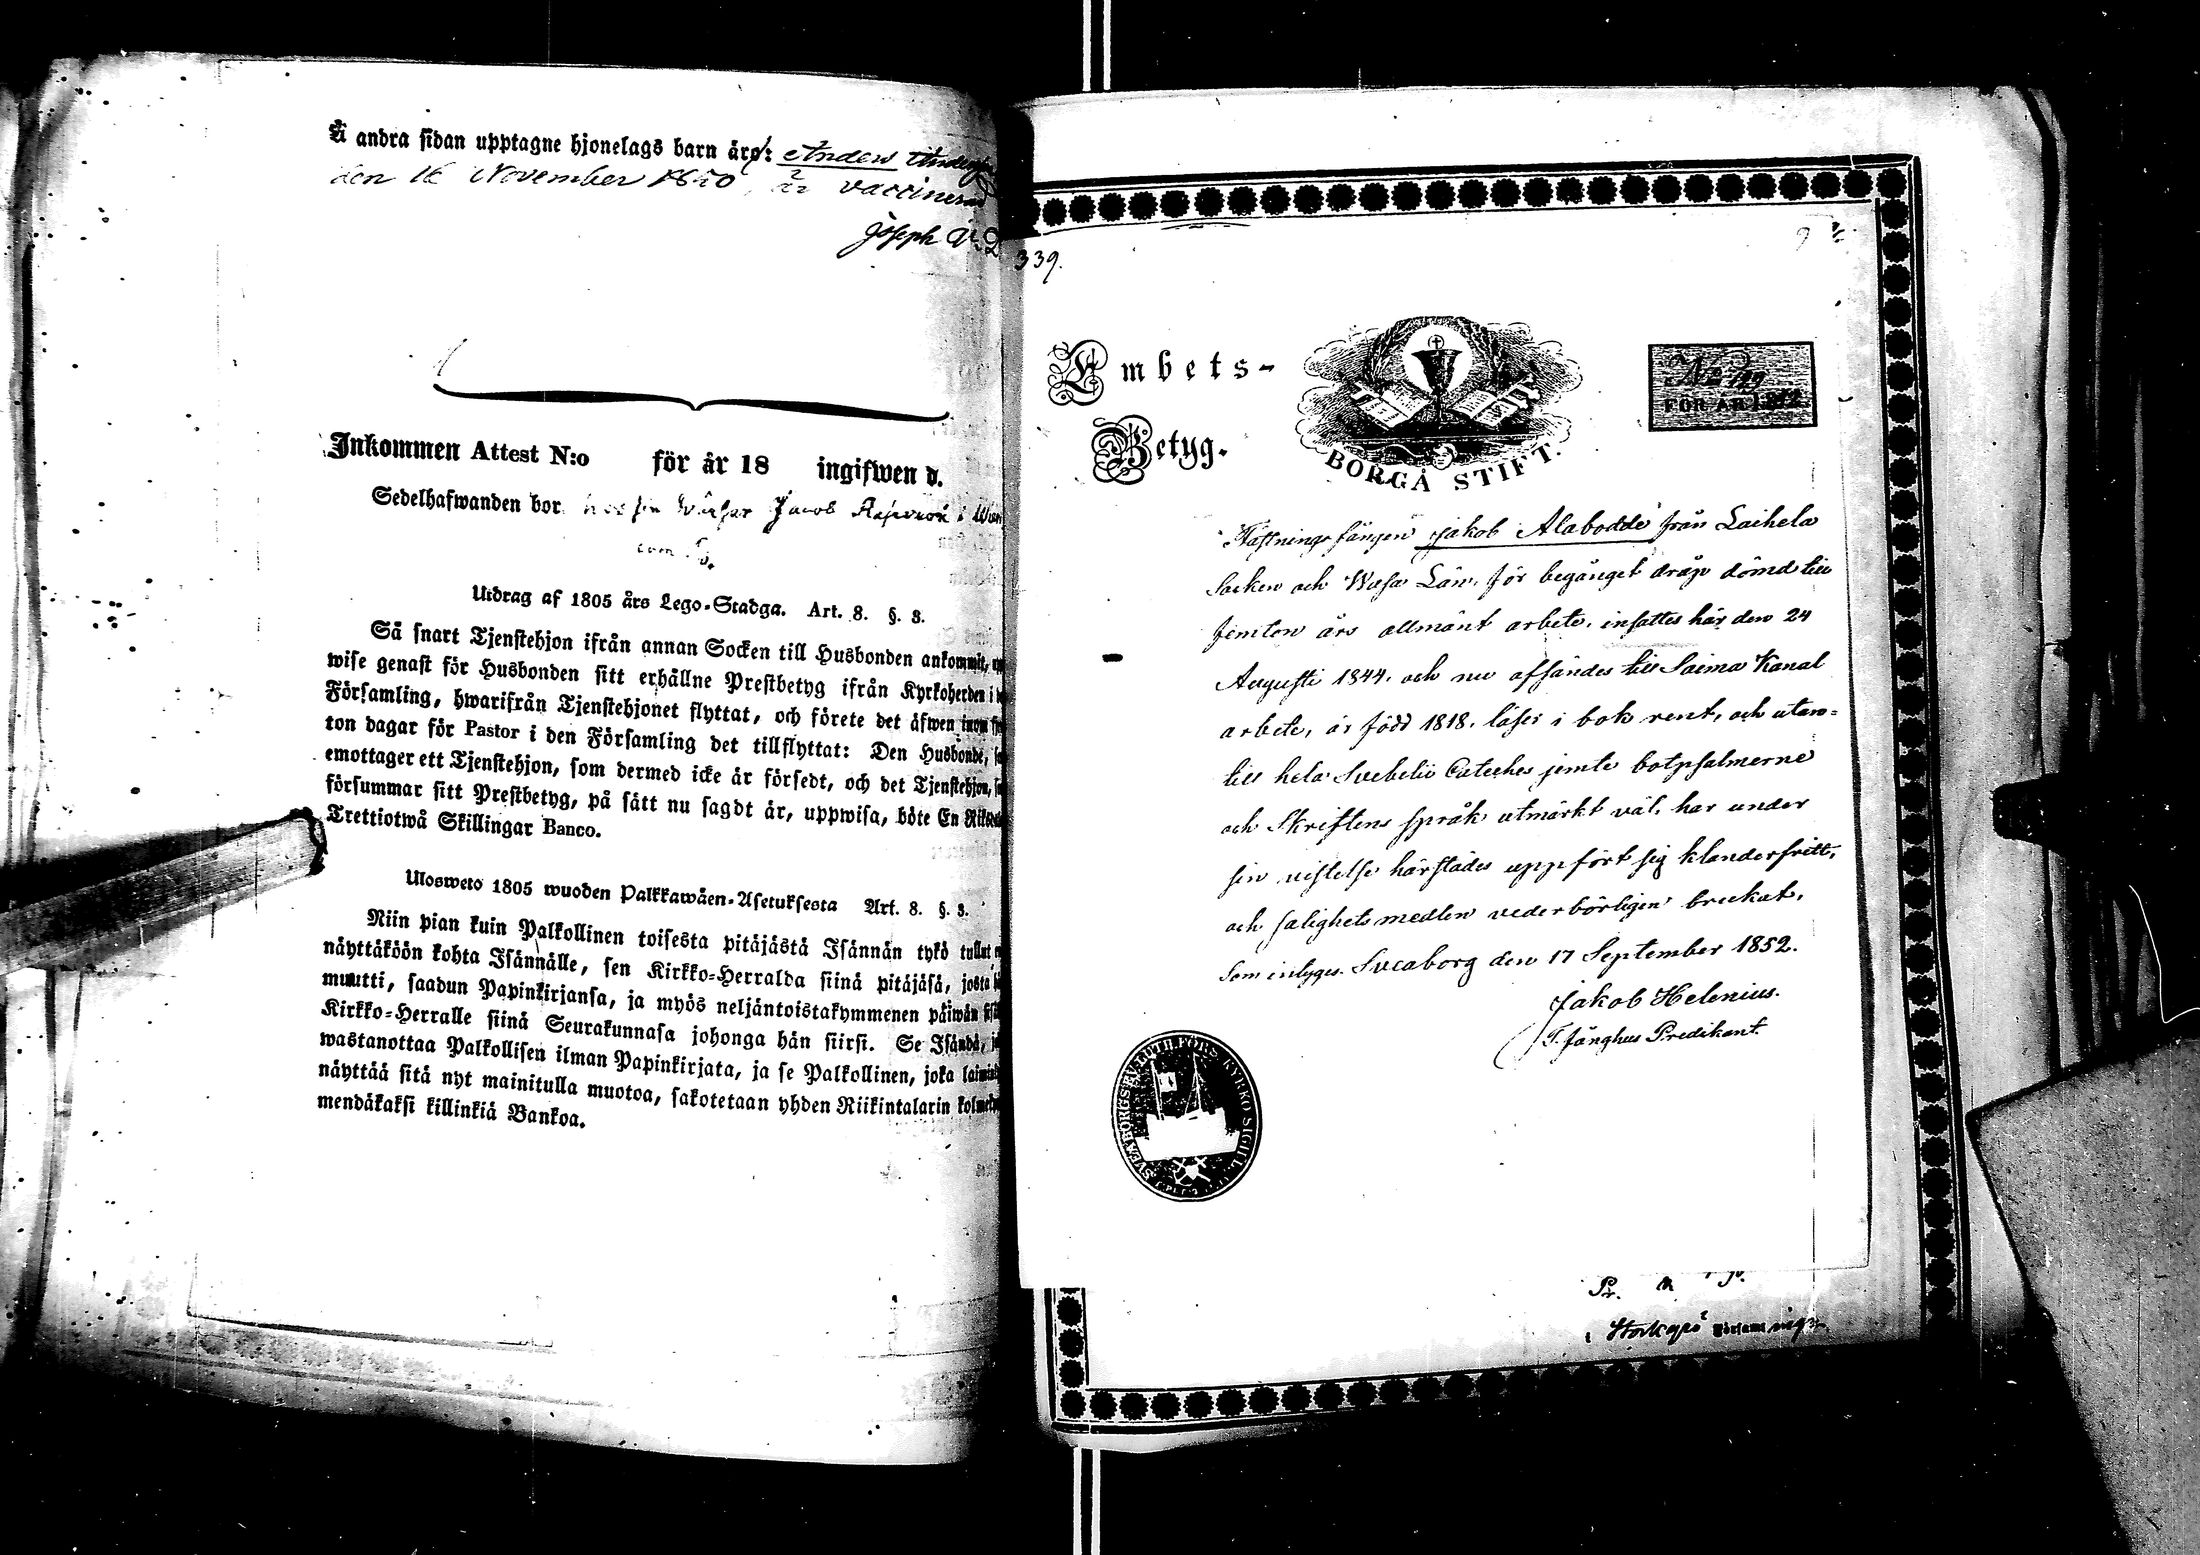 å andra sidan upptagne hjonelags barn äro: Anders
den 16 November 1850, är vaccinerad
Joseph
Inkommen Attest N:o för år 18 ingifwen d.
Sedelhafwanden bor hos Jacob i
Utdrag af 1805 års Lego-Stadga. Art. 8. §. 3.
Så snart Tjenstehjon ifrån annan Socken till Husbonden ankommit,
wise genast för Husbonden sitt erhållne Prestbetyg ifrån Kyrkoherden i
Församling, hwarifrån Tjenstehjonet flyttat, och förete det äfwen inom
ton dagar för Pastor i den Församling det tillflyttat: Den Husbonde,
emottager ett Tjenstehjon, som dermed icke är försedt, och det Tjenstehjon,
försummar sitt Prestbetyg, på sätt nu sagdt är, uppwisa, böte En
Trettiotwå Skillingar Banco.
Ulosweto 1805 wuoden Palkkawäen-Asetuksesta Art. 8. §. 3.
Niin pian kuin Palkollinen toisesta pitäjästä Isännän tykö tullut
näyttäköön kohta Isännälle, sen Kirkko-Herralda siinä pitäjäsä, josta
muutti, saadun Papinkirjansa, ja myös neljäntoistakymmenen päiwän
Kirkko-Herralle siinä Seurakunnasa johonga hän siirsi. Se Isändä,
wastanottaa Palkollisen ilman Papinkirjata, ja se Palkollinen, joka
näyttää sitä nyt mainitulla muotoa, sakotetaan yhden Riikintalarin
mendäkaksi killinkiä Bankoa.
339.
Embets-
Betyg.
BORGÅ STIFT.
FÖR ÅR 1852
Fästningsfången Jakob Alabodde från Laihela
Socken och Wasa Län, för begånget dråp dömd till
femton års allmänt arbete, insattes här den 24
Augusti 1844, och nu afsändes till Saima Kanal
arbete, är född 1818, läser i bok rent, och utan-
till hela Svebelii Cateches jemte botpsalmerne
och Skriftens språk utmärkt väl, har under
sin vistelse härstädes uppfört sig klanderfritt,
och salighetsmedlen vederbörligen bruckat,
Som intygas. Sveaborg den 17 September 1852.
Jakob Helenius.
T. f. fånghus Predikant.
SVEABORGS KYRKO SIGILL
i Storkyro Församling